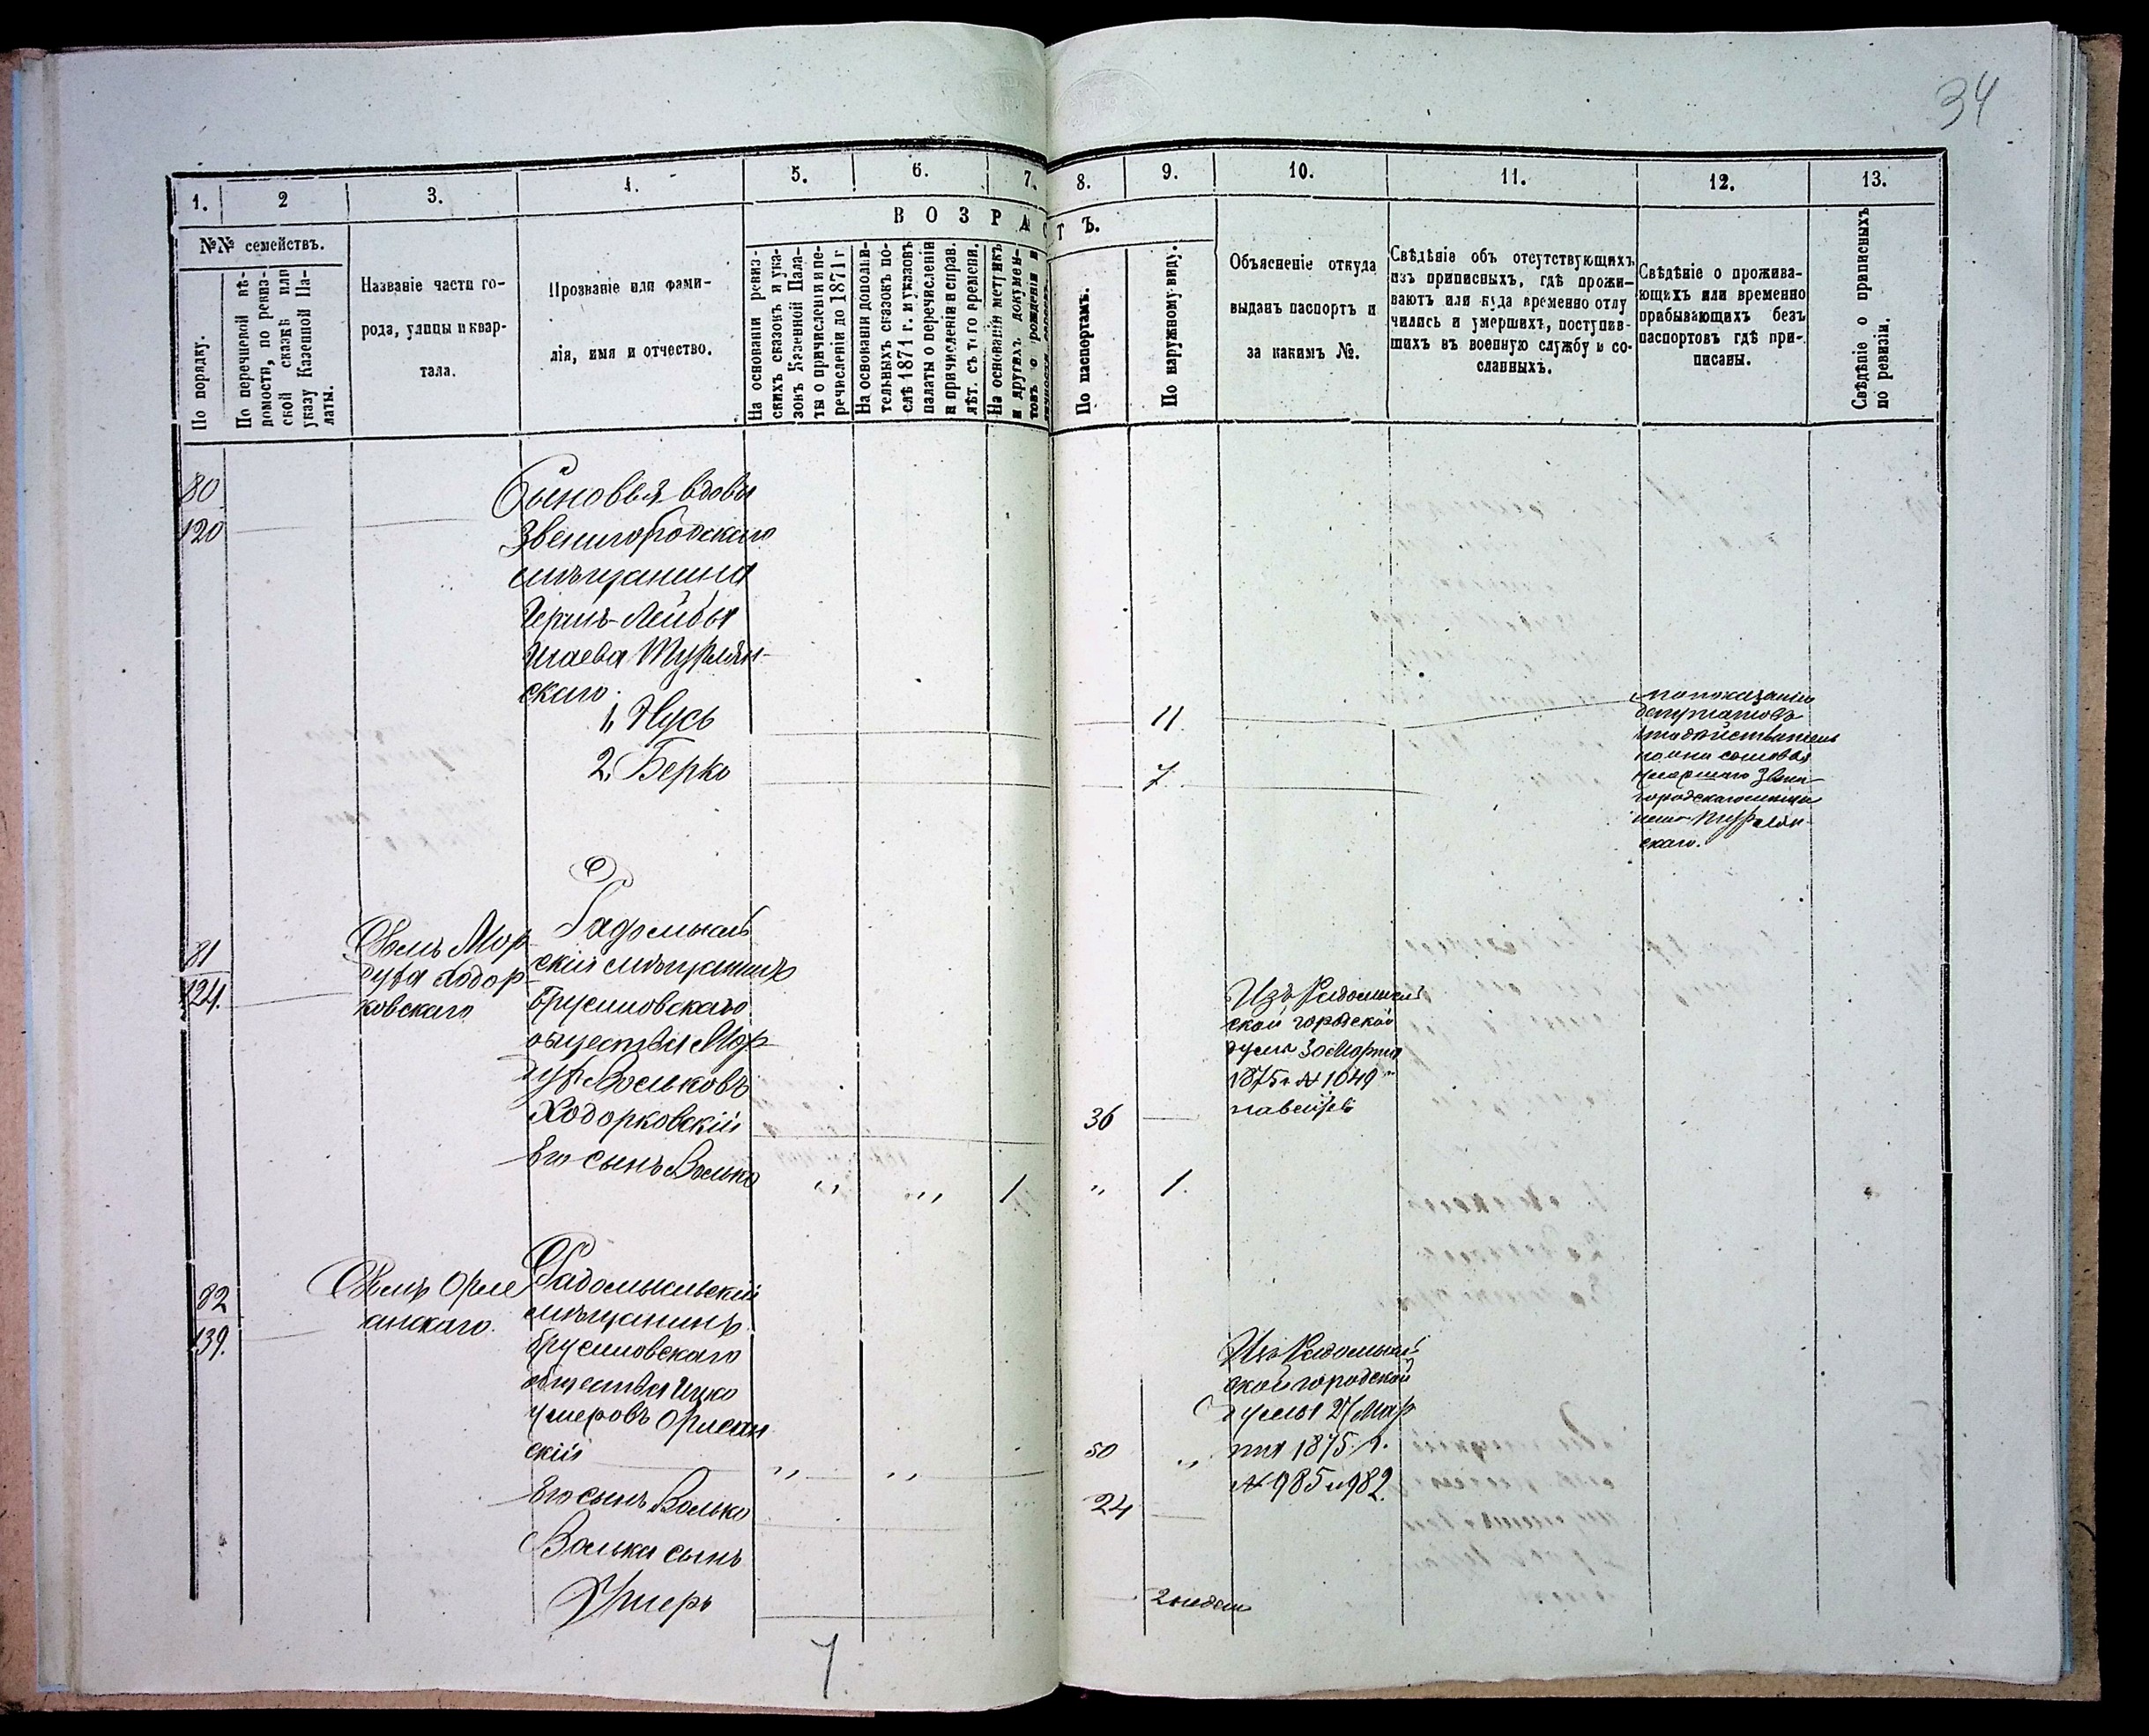 34
1. 2 3. 4. 5. 6. 7. 8. 9. 10. 11. 12. 13.
№№ семействъ.
По порядку.
По перечневой вѣ-
домости, по ревиз-
ской сказкѣ или
указу Казенной Па-
латы.
Названіе части го-
рода, улицы и квар-
тала.
Прозваніе или фами-
лія, имя и отчество.
ВОЗРАСТЪ.
На основаніи ревиз-
скихъ сказокъ и ука-
зовъ Казенной Пала-
ты о причисленіи и пе-
речисленіи до 1871 г.
На основаніи дополни-
тельныхъ сказокъ по-
слѣ 1871 г. и указовъ
палаты о перечисленіи
и причисленіи и справ.
лѣт. съ того времени.
На основаніи метрикъ
и другихъ докумен-
товъ о рожденіи и
По паспортамъ.
По наружному виду.
Объясненіе откуда
выданъ паспортъ и
за какимъ №.
Свѣдѣніе объ отсутствующихъ
изъ приписныхъ, гдѣ прожи-
ваютъ или куда временно отлу
чились и умершихъ, поступив-
шихъ въ военную службу и со-
сланныхъ.
Свѣдѣніе о прожива-
ющихъ или временно
прибывающихъ безъ
паспортовъ гдѣ при-
писаны.
Свѣдѣніе о приписныхъ
по ревизіи.
80
120
Сыновья вдовы
Звенигородскаго
мѣщанина
Герша-Лейбы
Шаева Турьян-
скаго.
1, Нусь
11.
2, Берко
7.
по показанію
депутатовъ
что действитель
но они сыновья
умершаго Звени-
городскаго мѣща
нина Турьян-
скаго.
81
124.
Домъ Мор
духа Ходор-
ковскаго
Радомысль
скій мѣщанинъ
Брусиловскаго
общества Мор-
дух Вольковъ
Ходорковскій
36
Изъ Радомысль
ской городской
думы 30 Марта
1875 г № 1049
Его сынъ Волько
" " 1 " 1.
82
139.
Домъ Орле
анскаго.
Радомысльскій
мѣщанинъ
Брусиловскаго
общества Ицко
Умеровъ Орлеан
скій
" " 50 "
Изъ Радомысль
ской городской
Думы 27 Мар
та 1875 г.
№ 985 и 982.
Его сынъ Волько
24
Волька сынъ
Умеръ
2 недели
7.